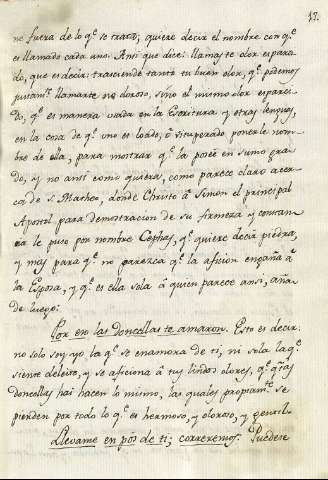 17.
ne fuera de lo q.^e se trata; quiere decir el nombre con q.^e
es llamado cada uno. Ansi que dice: llamaste olor espara-
do, que es decir: trasciende tanto tu buen olor, q.^e podemos
justam.^te llamarte no oloroso, sino el mismo olor esparci-
do, q.^e es manera usada en la Escritura y otras lenguas,
en la cosa de q.^e uno es loado, ò vituperado ponerle nom-
bre de ella, para mostrar q.^e la poseè en sumo gra-
do, y no ansi como quiera; como parece claro acer-
ca de S. Matheo, donde Christo à Simon el principal
Apostol para demostracion de su firmeza y constan-
cia le puso por nombre Cephas, q.^e quiere decir piedra,
y mas para q.^e no parezca q.^e la aficion engaña â
la Esposa, y q.^e es ella sola â quien parece ansi, aña-
de luego:
Por en las doncellas te amaron. Esto es decir:
no solo soy yo, la q.^e se enamora de ti, ni sola la q.^e
siente deleite, y se aficiona â tus lindos olores; q.^e q.^tas
doncellas hai hacen lo mismo, las quales propiam.^te se
pierden por todo lo q.^e es hermoso, y oloroso, y gentil.
Llevame en pos de ti; correremos. Puedese